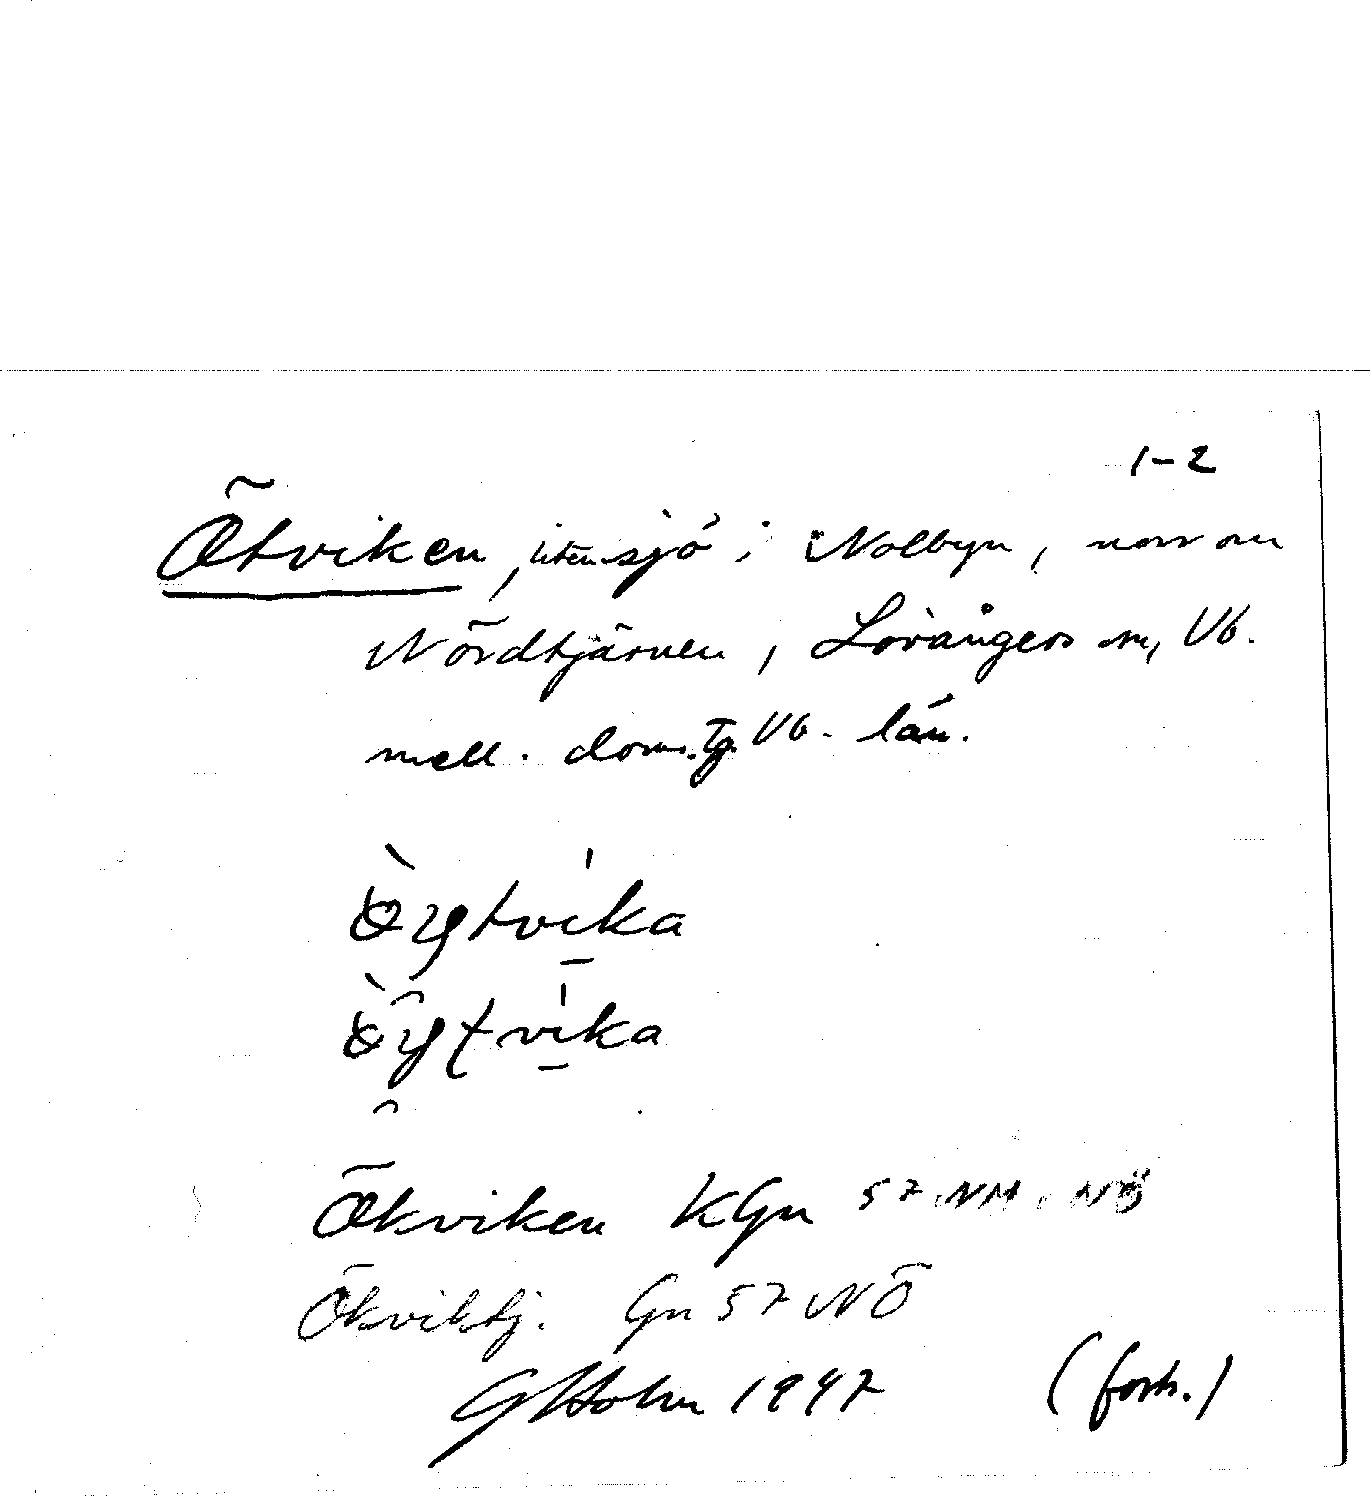 1-2
Ötviken, liten sjö i Nolbyn, norr om
Nördtjärnen, Lövångers sn, Vb.
mell. doms. Tg. Vb. län.
ö̀ytvíka
ö̀ŷtvíka
Ökviken KGn 57 NM, NÖ
Ökviktj. Gn 57 NÖ
GHolm 1947 (forts.)